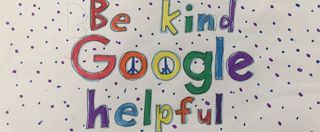 Be kind
Google
helpful